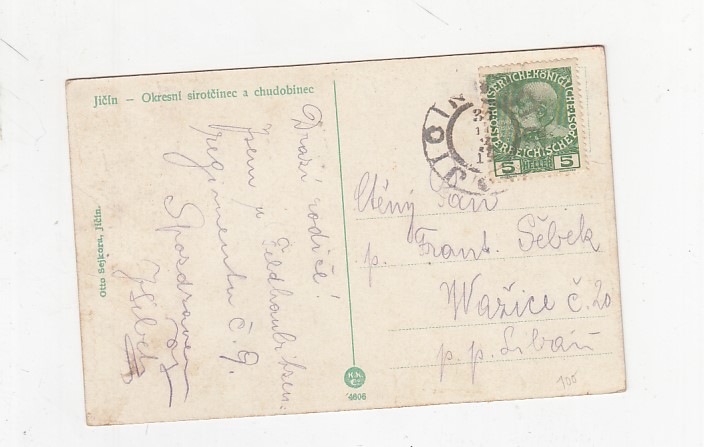 Jičín – Okresní sirotčinec a chudobinec
Otto Sejkora, Jičín.
Drazí rodiče!
Jsem u Feldhaubitzen
regimentu č. 9.
S pozdravem
JIČÍN
KAISERLICHE KÖNIGLICHE
ÖSTERREICHISCHE POST
5 HELLER 5
Ctěný Pan
p. Frant. Šěbek
Wažice č. 20
p. p. Libáň
105
4606